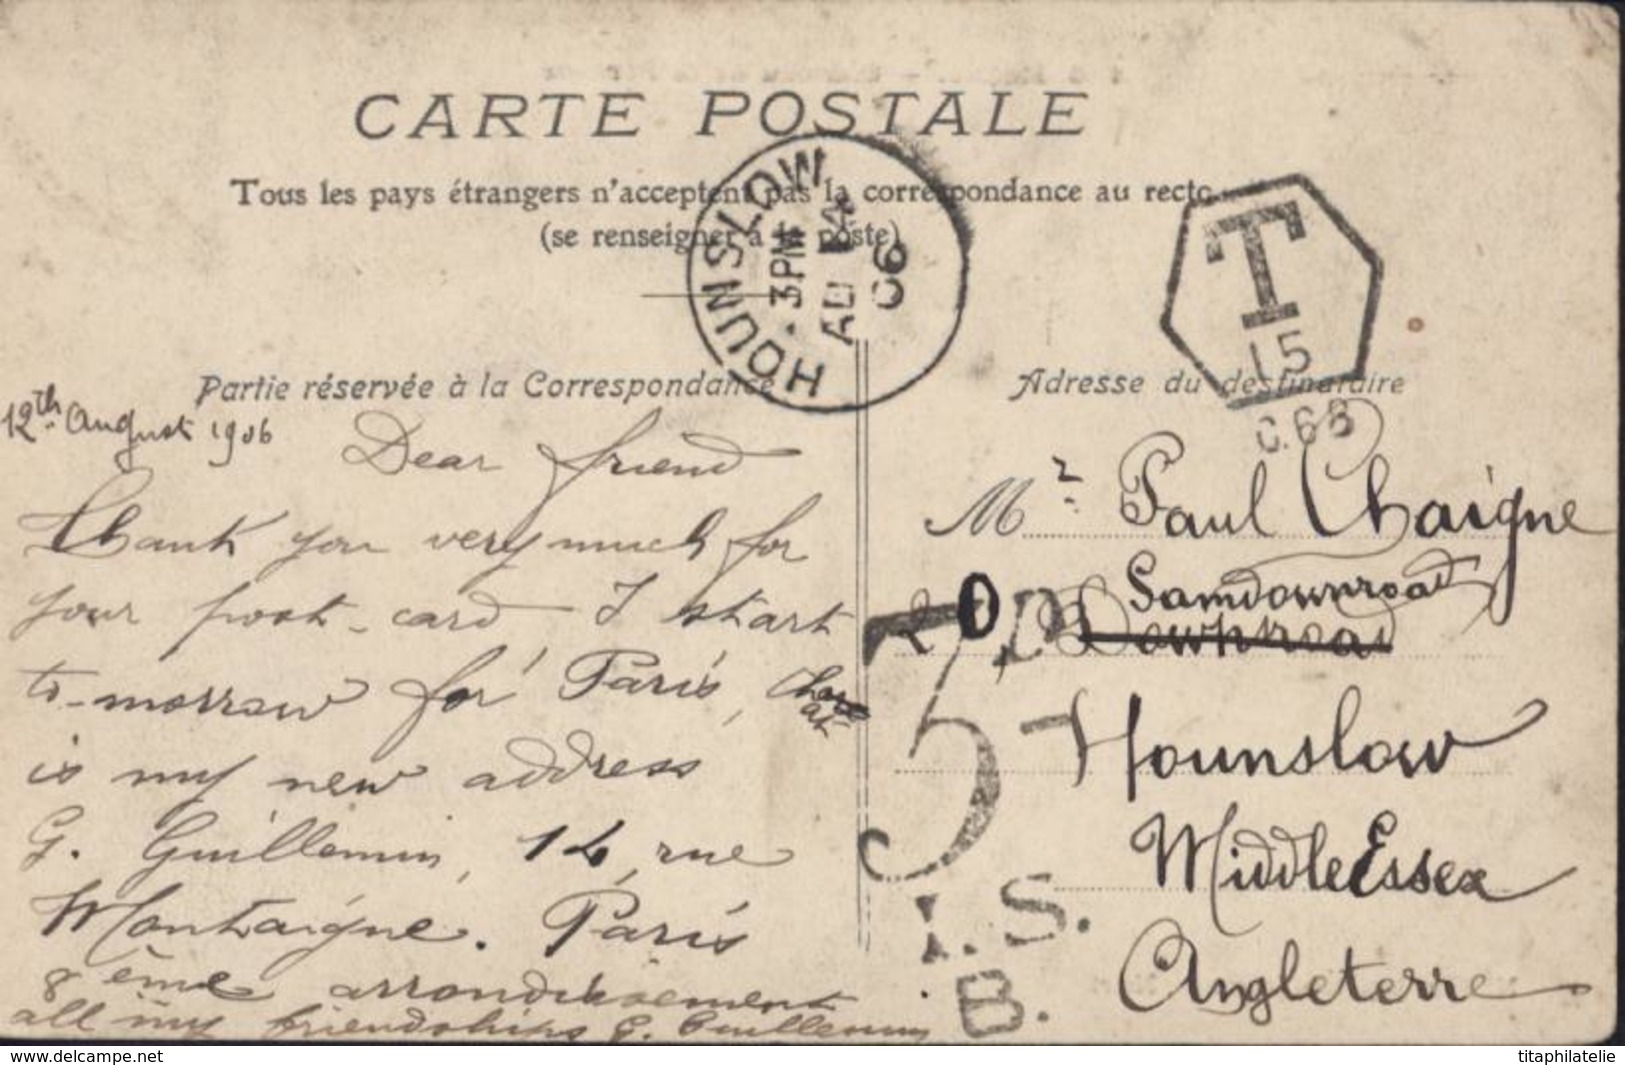 CARTE POSTALE
Tous les pays étrangers n'acceptent pas la correspondance au recto
(se renseigner à la poste)
HOUNSLOW
3 PM
AU 14
06
T
15
C.68
Partie réservée à la Correspondance
12th August 1906
Dear friend
Thank you very much for
your post-card I start
to-morrow for Paris,
is my new address
G. Guillemin, 14, rue
Montaigne. Paris
8ème arrondissement
all my friendships G. Guillemin
Adresse du destinataire
Mr Paul Chaigne
Samdownroad
20 Downroad
Hounslow
MiddleEssex
Angleterre
I.S.
B.
titaphilatelie
www.delcampe.net